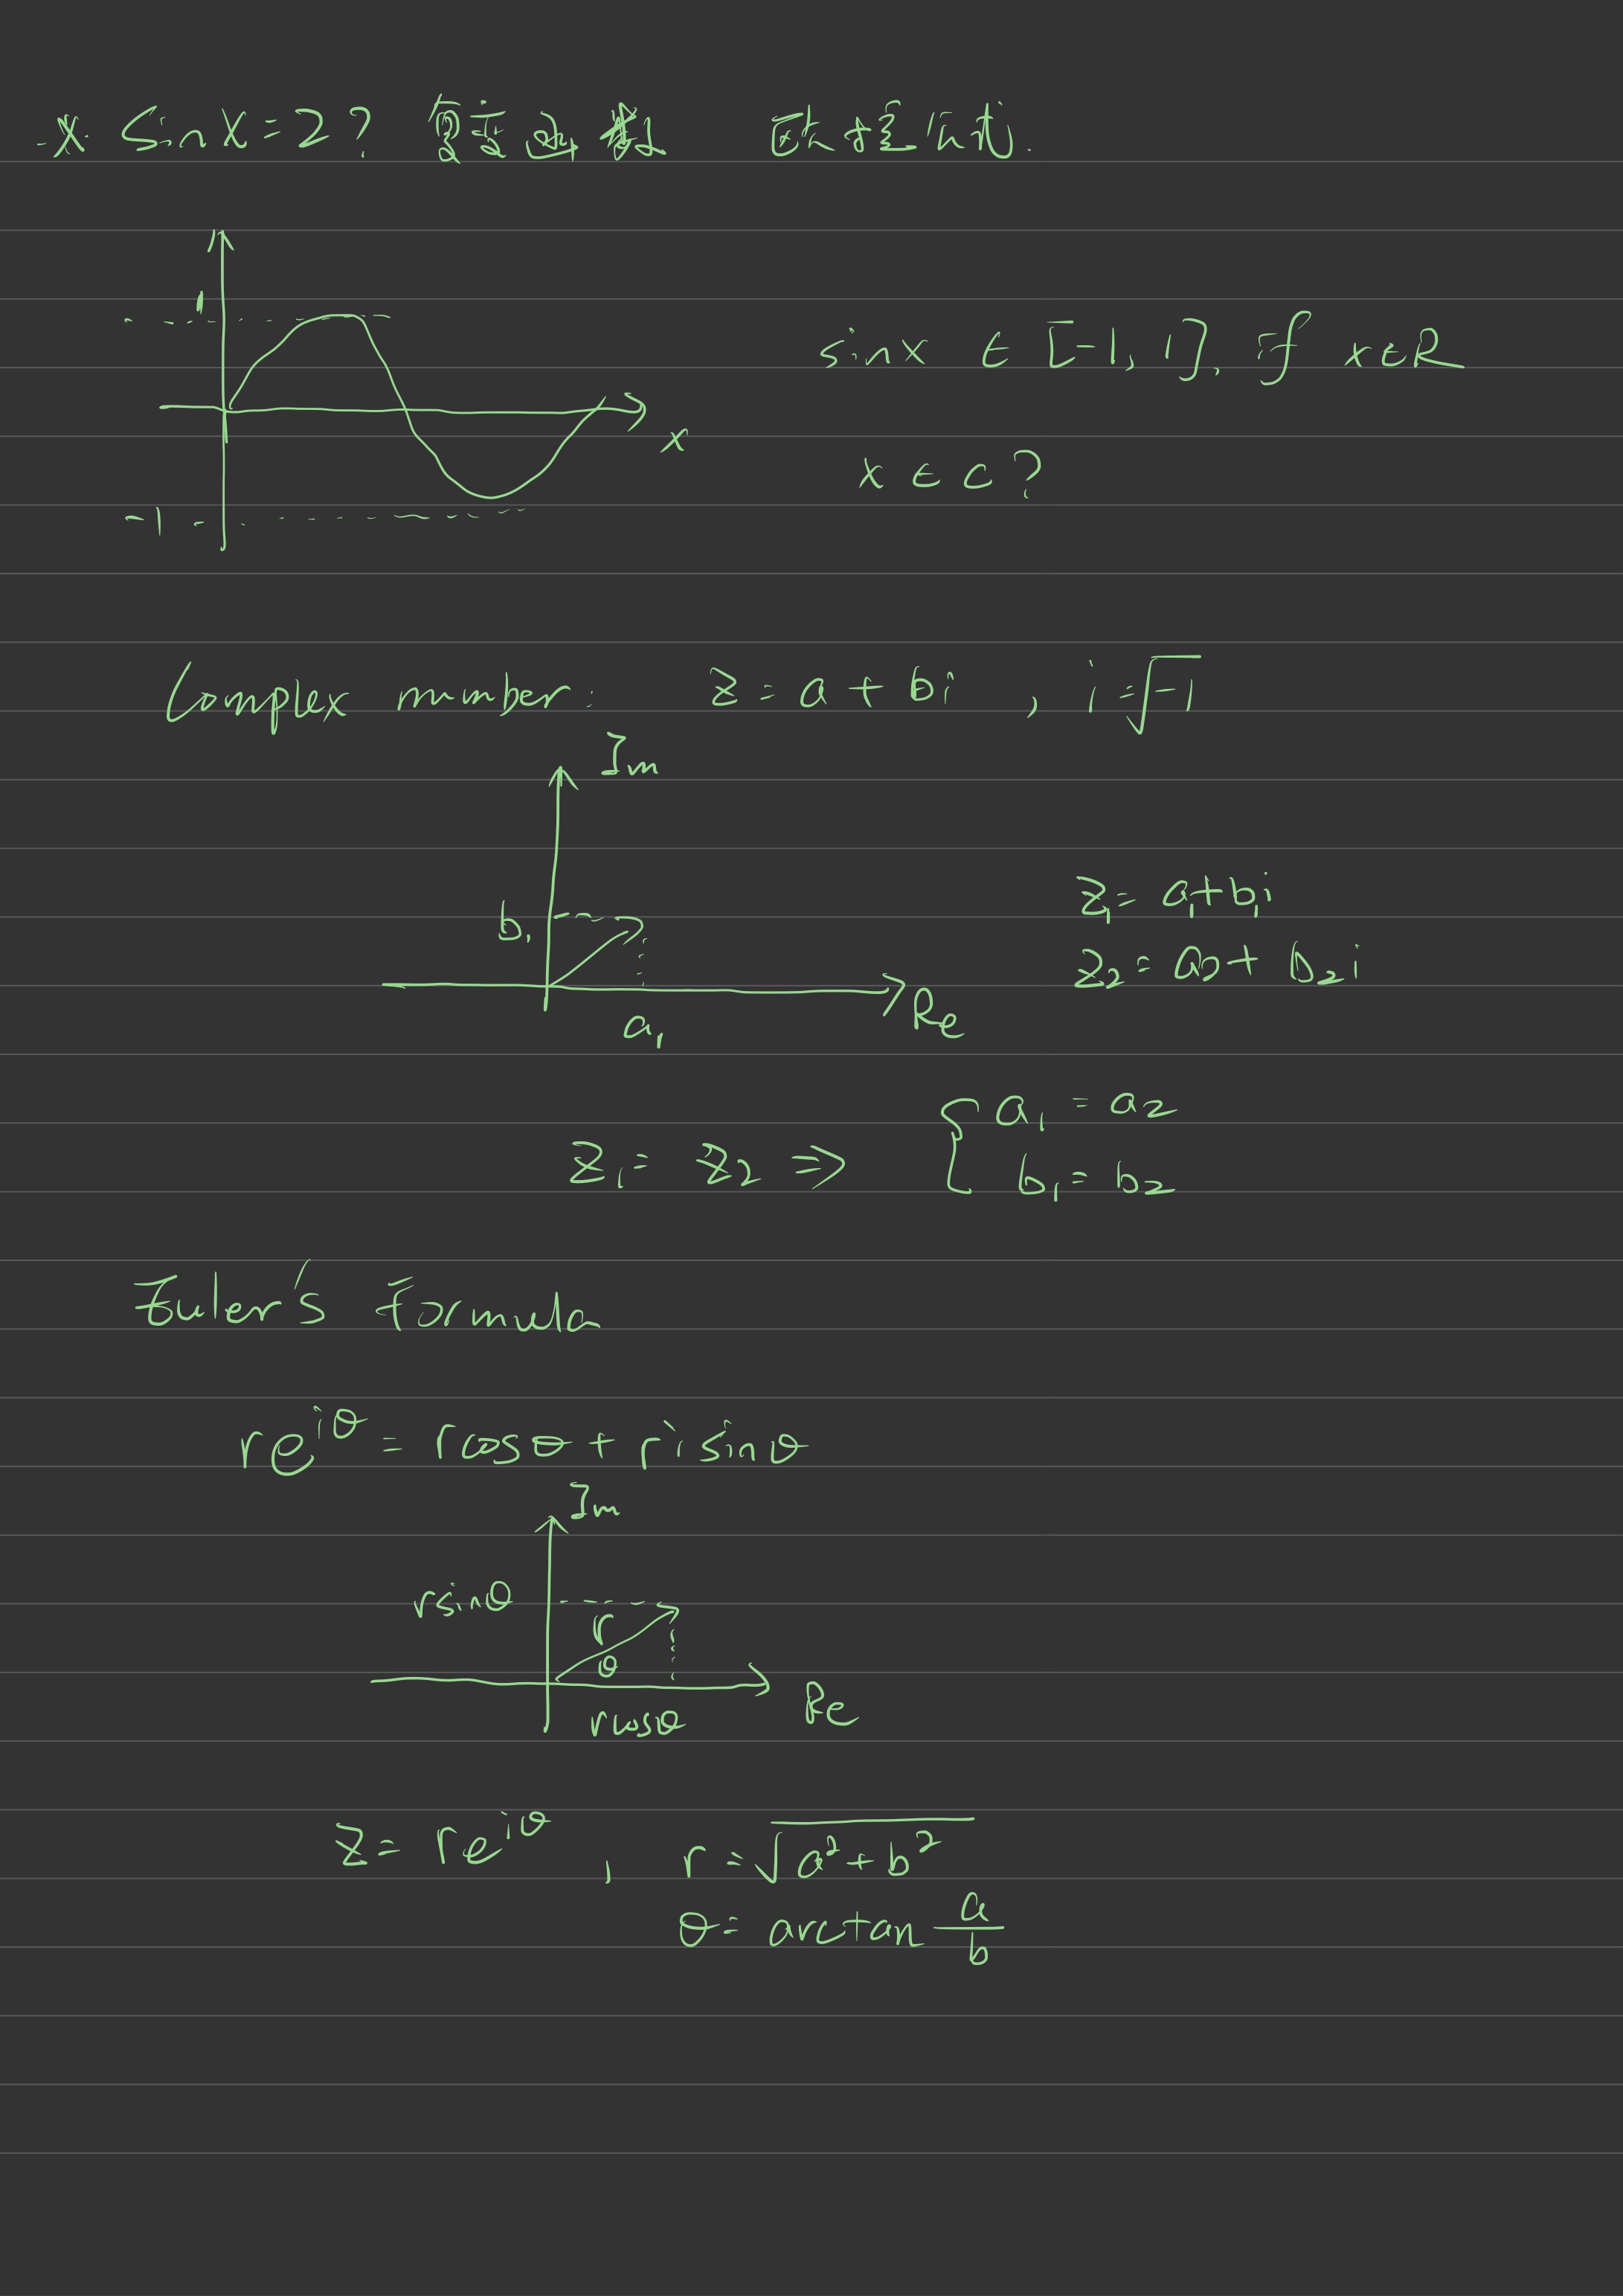 ※ sinx=2? 复变函数
1
sinx ∈ [-1, 1], if x∈R
x
x ∈ C?
-1
Complex number: z = a + bi , i = √-1
Im
z₁ = a₁+b₁i
b₁
z₂ = a₂+ b₂i
Re
a₁
a₁ = a₂
z₁ = z₂ ⇒ {
b₁ = b₂
Euler's Formula
re^{iθ} = rcosθ + r i sinθ
Im
rsinθ
r
θ
Re
rcosθ
z = re^{iθ} , r = √(a²+b²)
θ = arctan a/b